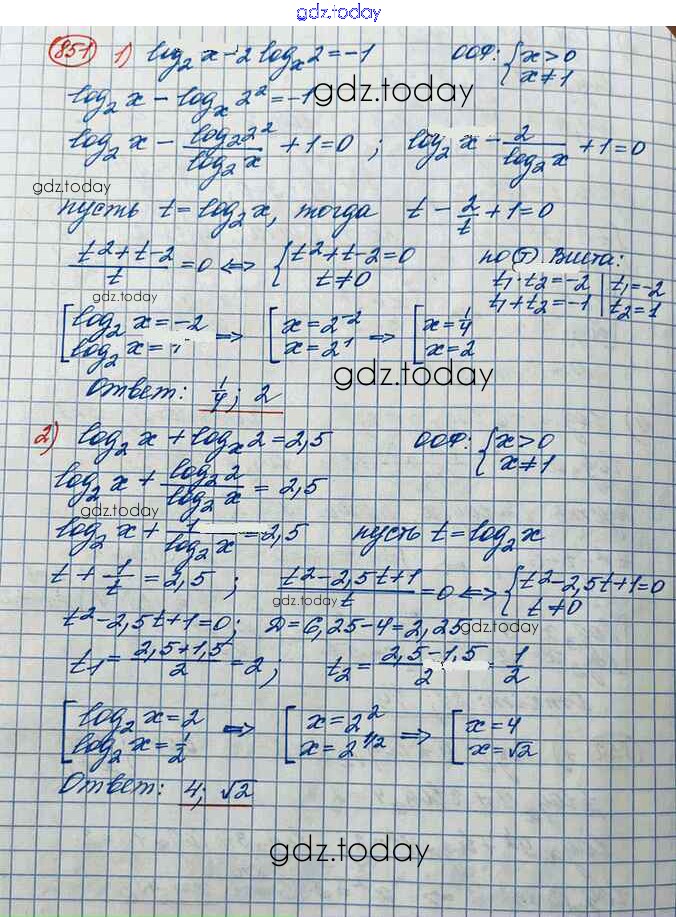 gdz.today
851 1) log₂ x - 2 logₓ 2 = -1 ООФ: { x > 0
x ≠ 1
log₂ x - logₓ 2² = -1 gdz.today
log₂ x - log₂ 2² / log₂ x + 1 = 0 ; log₂ x - 2 / log₂ x + 1 = 0
gdz.today
пусть t = log₂ x, тогда t - 2/t + 1 = 0
(t² + t - 2) / t = 0 ⟺ { t² + t - 2 = 0 по (т) Виета:
t ≠ 0 t₁ · t₂ = -2 | t₁ = -2
gdz.today t₁ + t₂ = -1 | t₂ = 1
[ log₂ x = -2 ⇒ [ x = 2⁻² ⇒ [ x = 1/4
log₂ x = 1 x = 2¹ x = 2
gdz.today
Ответ: 1/4 ; 2
2) log₂ x + logₓ 2 = 2,5 ООФ: { x > 0
x ≠ 1
log₂ x + log₂ 2 / log₂ x = 2,5
gdz.today
log₂ x + 1 / log₂ x = 2,5 пусть t = log₂ x
t + 1/t = 2,5 ; (t² - 2,5t + 1) / t = 0 ⟺ { t² - 2,5t + 1 = 0
gdz.today t ≠ 0
t² - 2,5t + 1 = 0; D = 6,25 - 4 = 2,25 gdz.today
t₁ = (2,5 + 1,5) / 2 = 2 ; t₂ = (2,5 - 1,5) / 2 = 1/2
[ log₂ x = 2 ⇒ [ x = 2² ⇒ [ x = 4
log₂ x = 1/2 x = 2^1/2 x = √2
Ответ: 4; √2
gdz.today